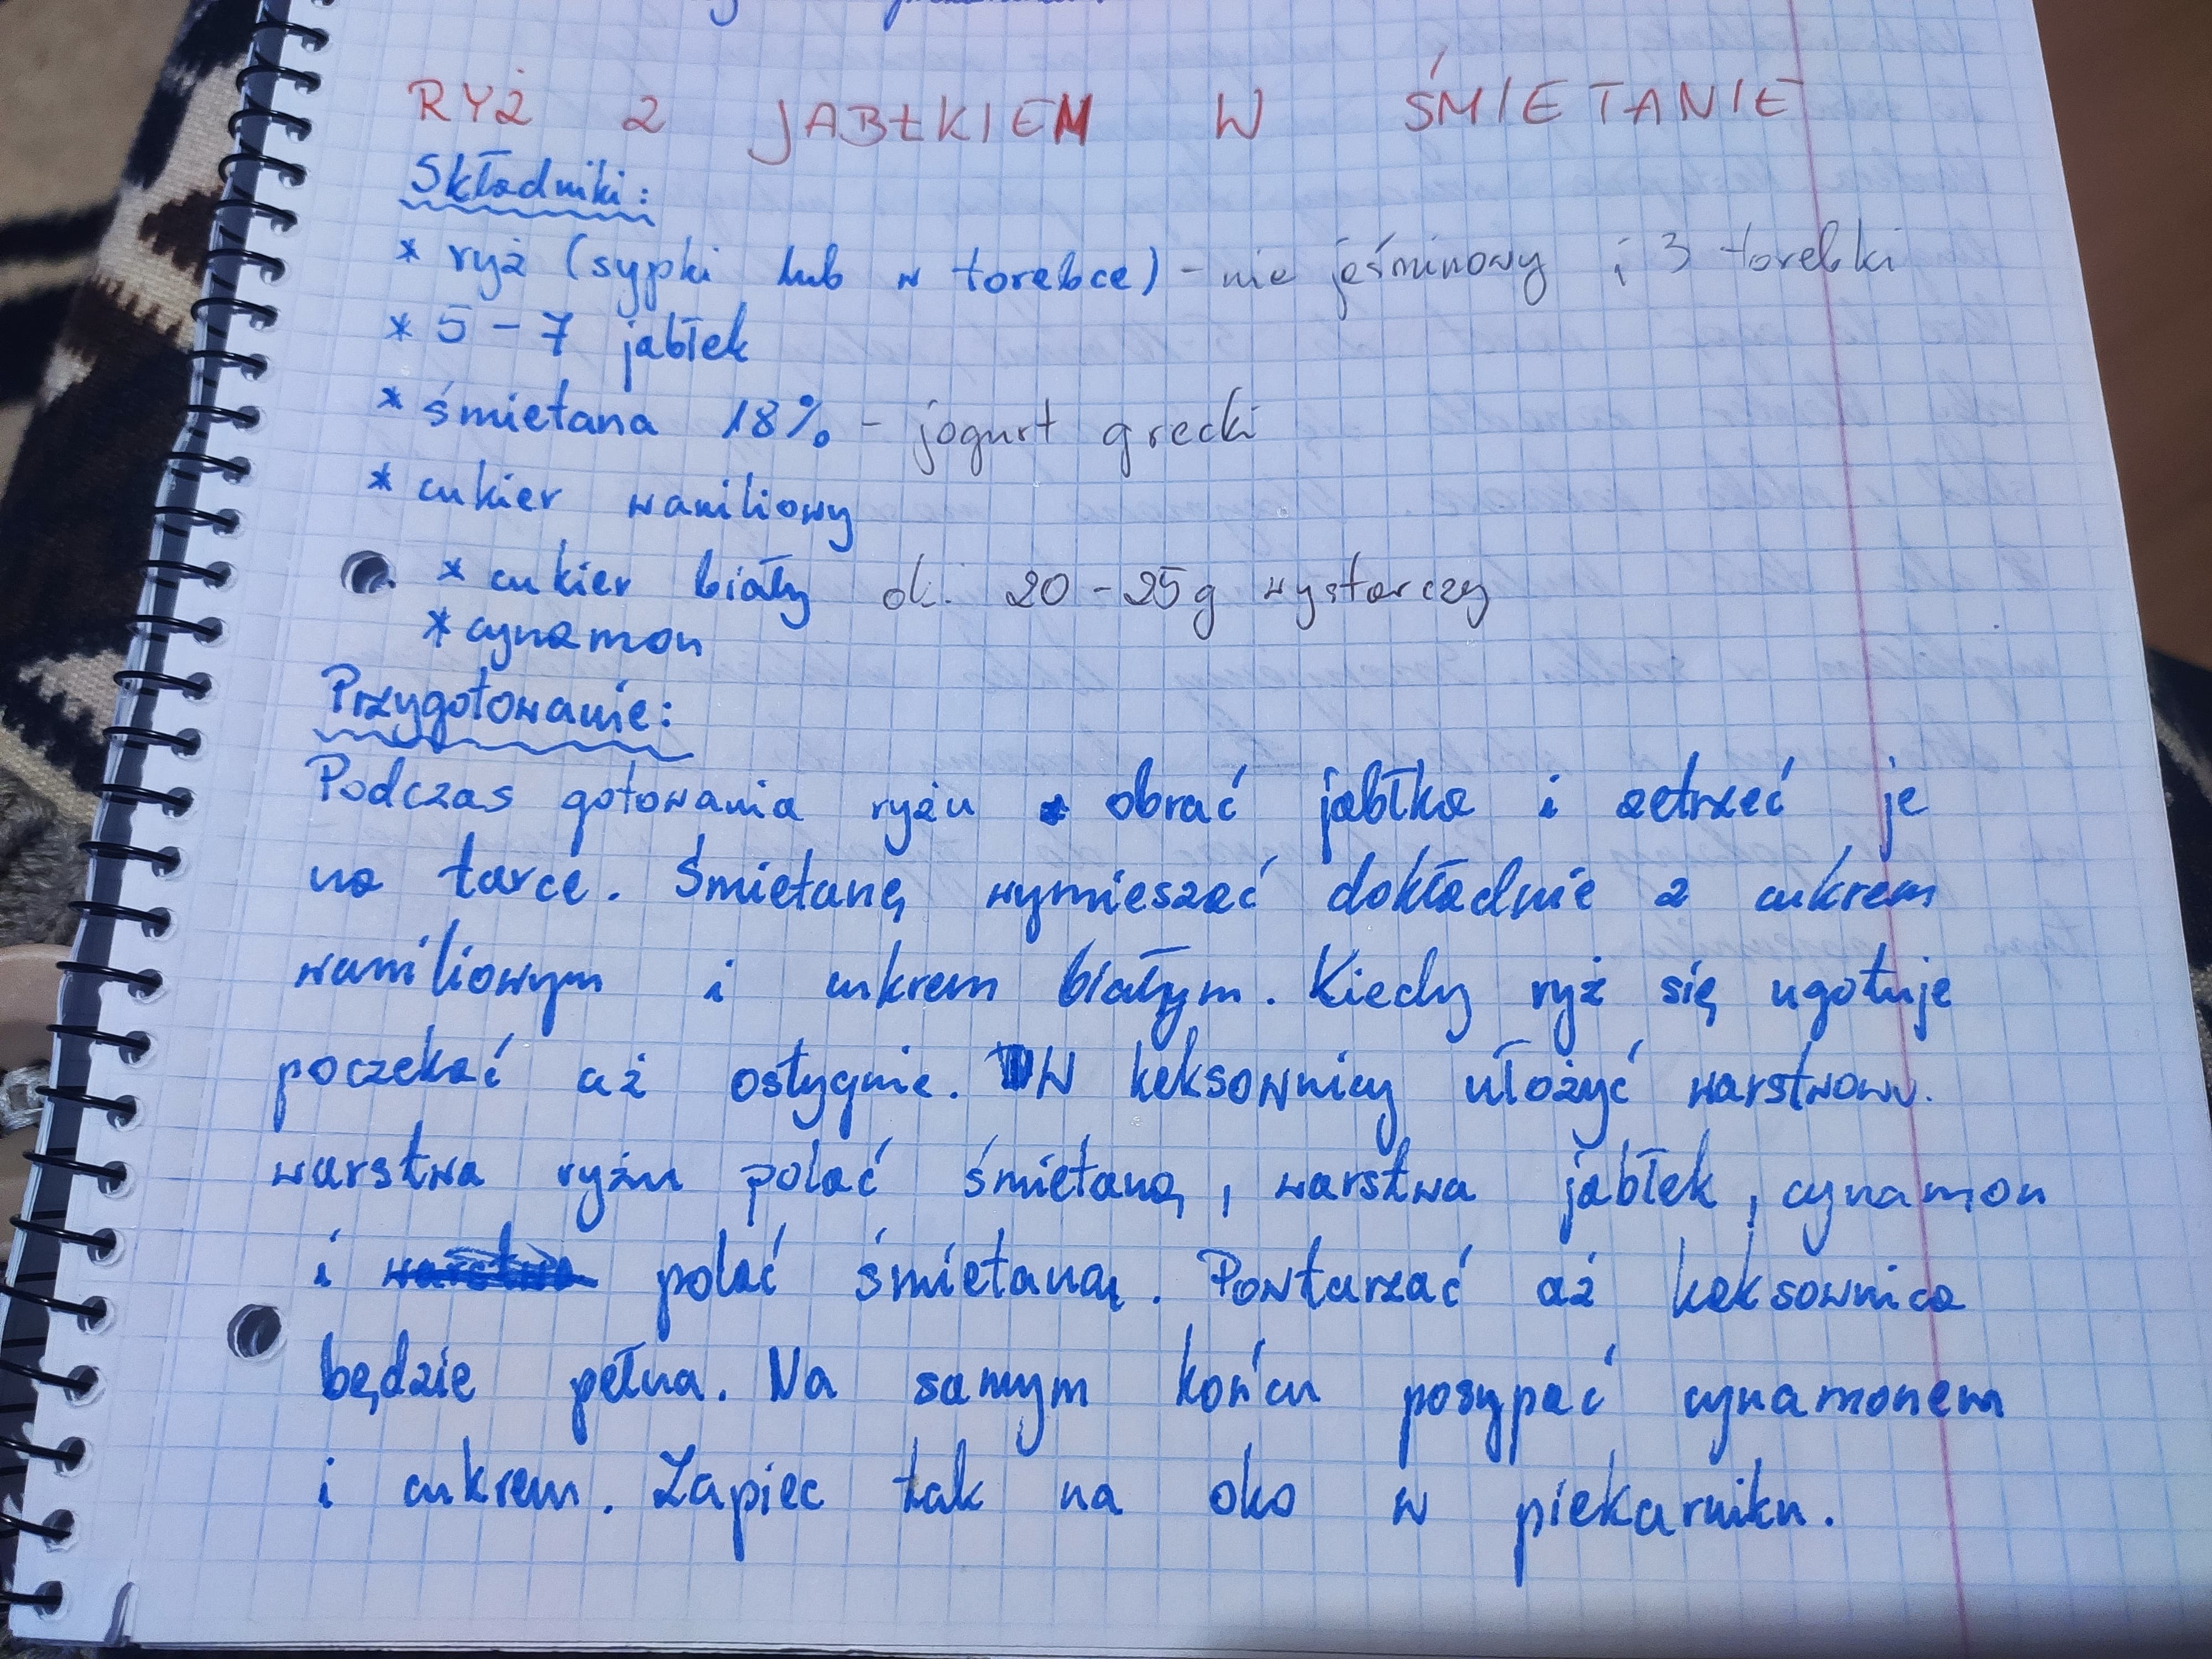 RYŻ Z JABŁKIEM W ŚMIETANIE
Składniki:
* ryż (sypki lub w torebce) - nie jaśminowy i 3 torebki
* 5 - 7 jabłek
* śmietana 18% - jogurt grecki
* cukier waniliowy
* cukier biały ok. 20 - 25g wystarczy
* cynamon
Przygotowanie:
Podczas gotowania ryżu obrać jabłka i zetrzeć je
na tarce. Śmietanę wymieszać dokładnie z cukrem
waniliowym i cukrem białym. Kiedy ryż się ugotuje
poczekać aż ostygnie. W keksownicy ułożyć warstwowo.
warstwa ryżu polać śmietaną, warstwa jabłek, cynamon
i polać śmietaną. Powtarzać aż keksownica
będzie pełna. Na samym końcu posypać cynamonem
i cukrem. Zapiec tak na oko w piekarniku.